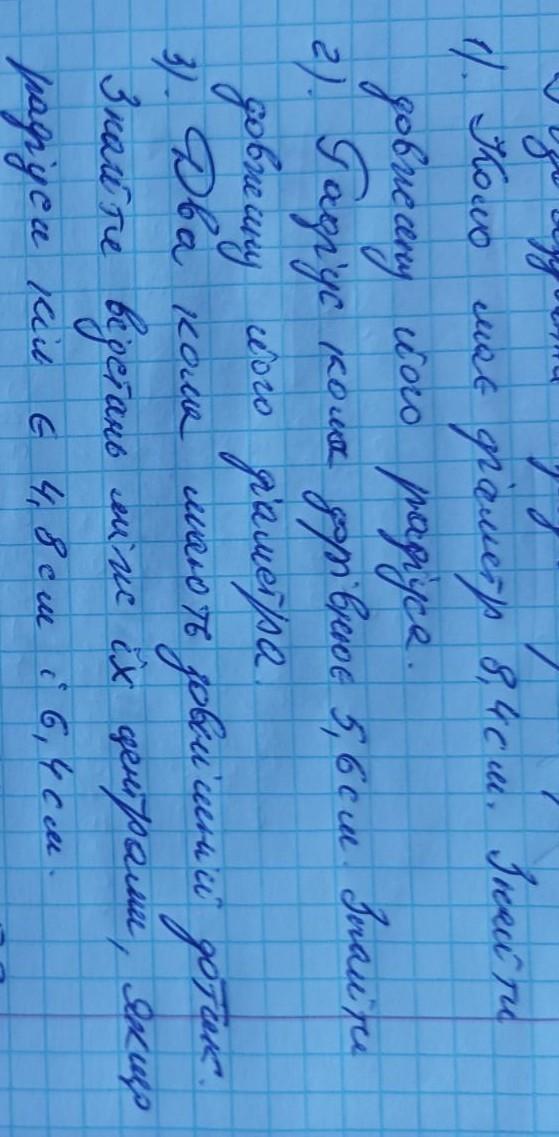 1). Коло має діаметр 8,4см. Знайти
довжину його радіуса.
2). Радіус кола дорівнює 5,6см. Знайти
довжину його діаметра.
3). Два кола мають зовнішній дотик.
Знайти відстань між їх центрами, якщо
радіуси кіл є 4,8см і 6,4см.